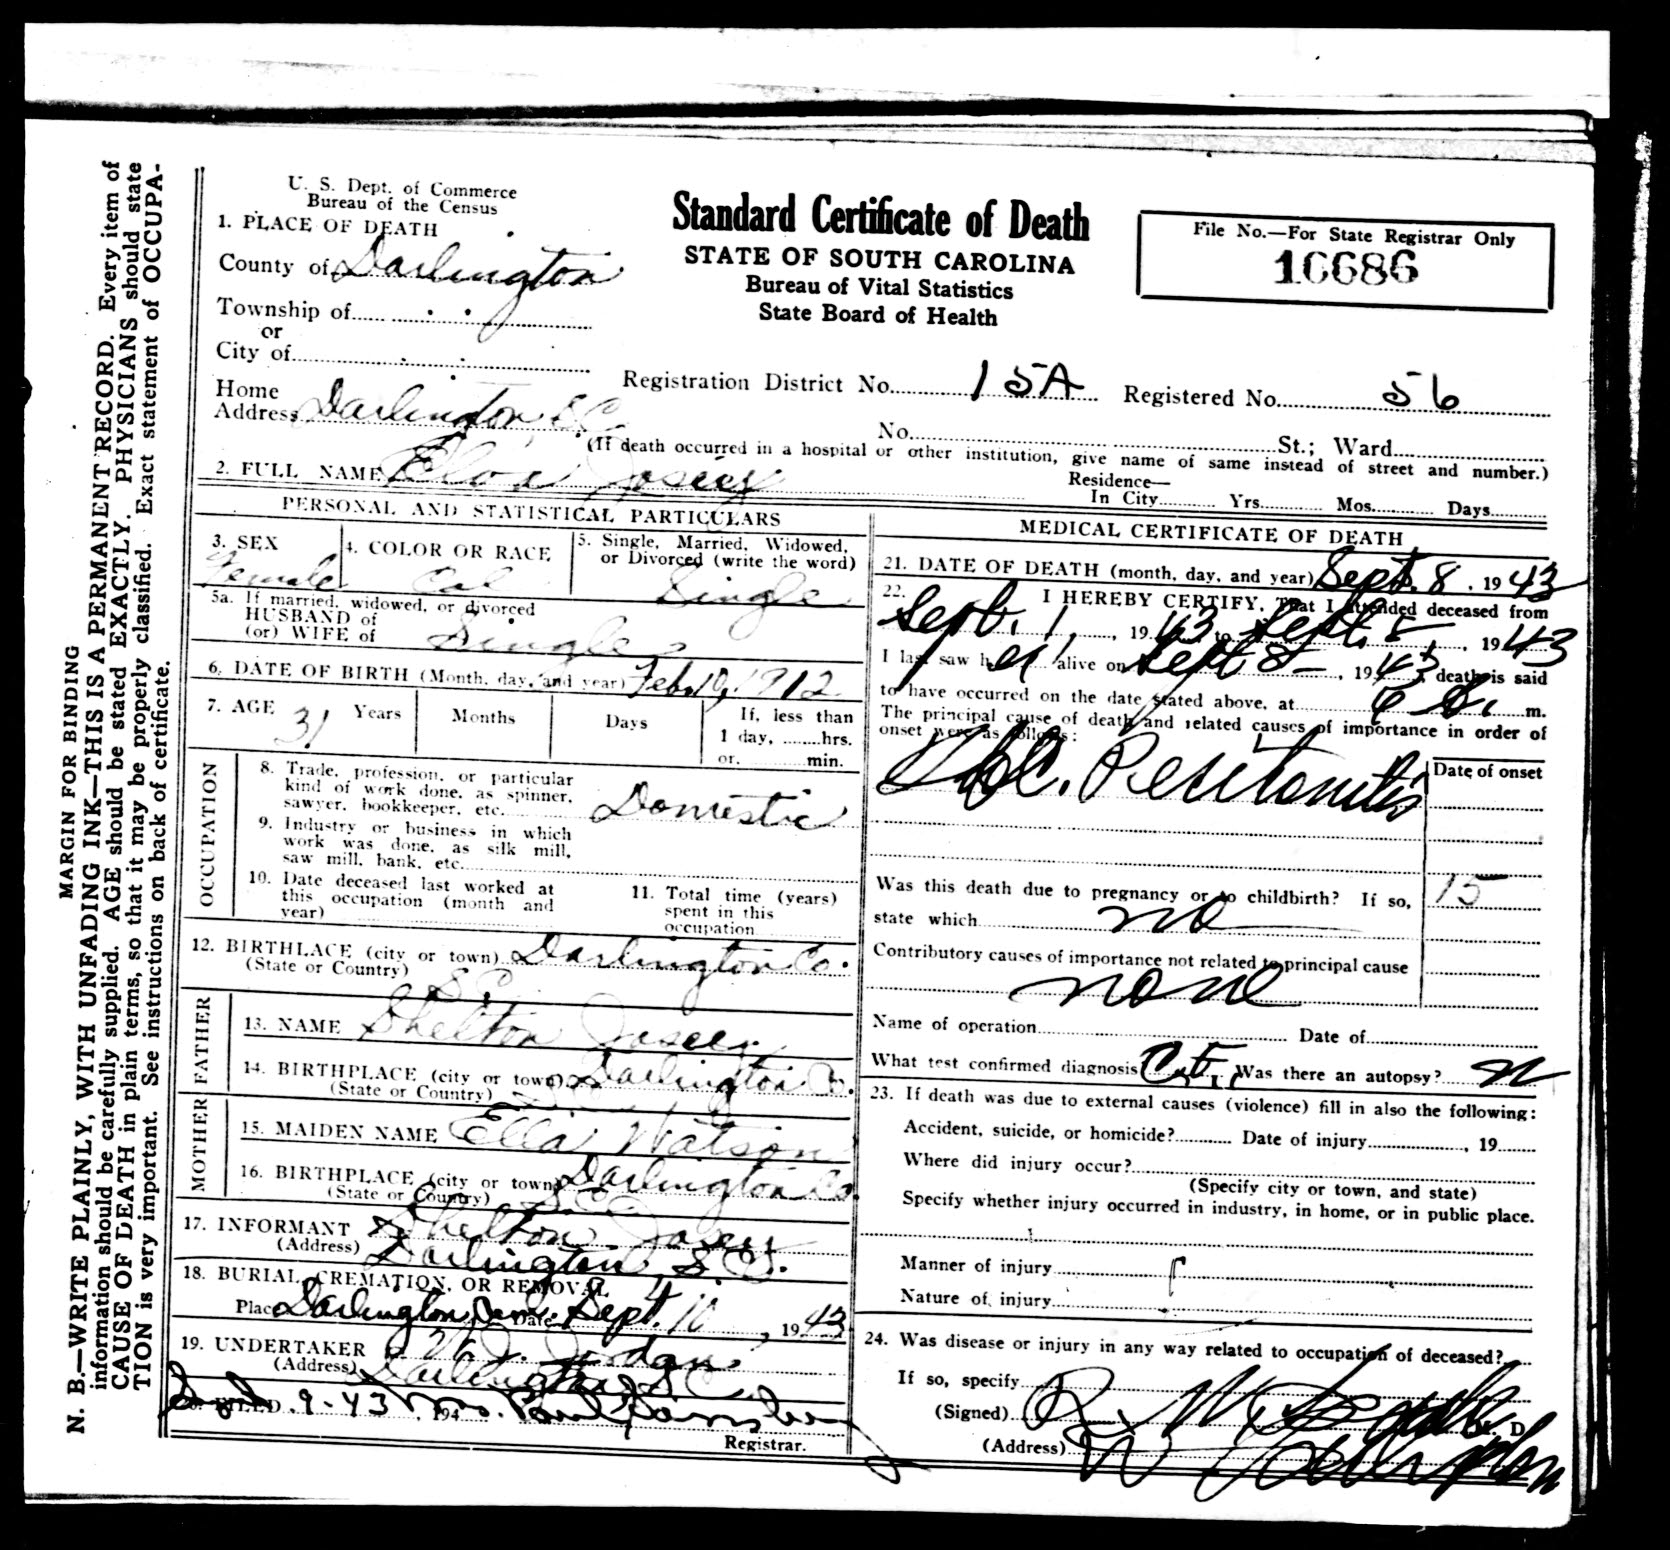 U. S. Dept. of Commerce
Bureau of the Census
Standard Certificate of Death
STATE OF SOUTH CAROLINA
Bureau of Vital Statistics
State Board of Health
File No.—For State Registrar Only
16686
1. PLACE OF DEATH
County of Darlington
Township of
or
City of
Home
Address Darlington, S.C.
Registration District No. 15A Registered No. 56
No. St.; Ward
(If death occurred in a hospital or other institution, give name of same instead of street and number.)
2. FULL NAME Josey
Residence—
In City Yrs. Mos. Days
PERSONAL AND STATISTICAL PARTICULARS
3. SEX
Female
4. COLOR OR RACE
Col
5. Single, Married, Widowed,
or Divorced (write the word)
Single
5a. If married, widowed, or divorced
HUSBAND of
(or) WIFE of Single
6. DATE OF BIRTH (Month, day, and year) Feb. 10, 1912
7. AGE 31 Years Months Days If, less than
1 day, hrs.
or, min.
OCCUPATION
8. Trade, profession, or particular
kind of work done, as spinner,
sawyer, bookkeeper, etc. Domestic
9. Industry or business in which
work was done, as silk mill,
saw mill, bank, etc.
10. Date deceased last worked at
this occupation (month and
year)
11. Total time (years)
spent in this
occupation
12. BIRTHLACE (city or town) Darlington Co.
(State or Country) S.C.
FATHER
13. NAME Shelton Josey
14. BIRTHPLACE (city or town) Darlington Co.
(State or Country) S.C.
MOTHER
15. MAIDEN NAME Ella Watson
16. BIRTHPLACE (city or town) Darlington Co.
(State or Country) S.C.
17. INFORMANT Shelton Josey
(Address) Darlington, S.C.
18. BURIAL, CREMATION, OR REMOVAL
Place Darlington Date Sept. 10, 1943
19. UNDERTAKER Jordan
(Address) Darlington, S.C.
20. FILED 9-43, 194 Mrs. Paul
Registrar.
MEDICAL CERTIFICATE OF DEATH
21. DATE OF DEATH (month, day, and year) Sept. 8, 1943
22. I HEREBY CERTIFY, That I attended deceased from
Sept. 1, 1943 to Sept. 8, 1943
I last saw her alive on Sept 8, 1943, death is said
to have occurred on the date stated above, at 6 m.
The principal cause of death and related causes of importance in order of
onset were as follows:
Peritonitis
Date of onset
Was this death due to pregnancy or to childbirth? If so,
state which no
15
Contributory causes of importance not related to principal cause
none
Name of operation Date of
What test confirmed diagnosis Was there an autopsy? n
23. If death was due to external causes (violence) fill in also the following:
Accident, suicide, or homicide? Date of injury, 19
Where did injury occur?
(Specify city or town, and state)
Specify whether injury occurred in industry, in home, or in public place.
Manner of injury
Nature of injury
24. Was disease or injury in any way related to occupation of deceased?
If so, specify
(Signed) R. M. D.
(Address)
MARGIN FOR BINDING
N. B.—WRITE PLAINLY, WITH UNFADING INK—THIS IS A PERMANENT RECORD. Every item of
information should be carefully supplied. AGE should be stated EXACTLY. PHYSICIANS should state
CAUSE OF DEATH in plain terms, so that it may be properly classified. Exact statement of OCCUPA-
TION is very important. See instructions on back of certificate.